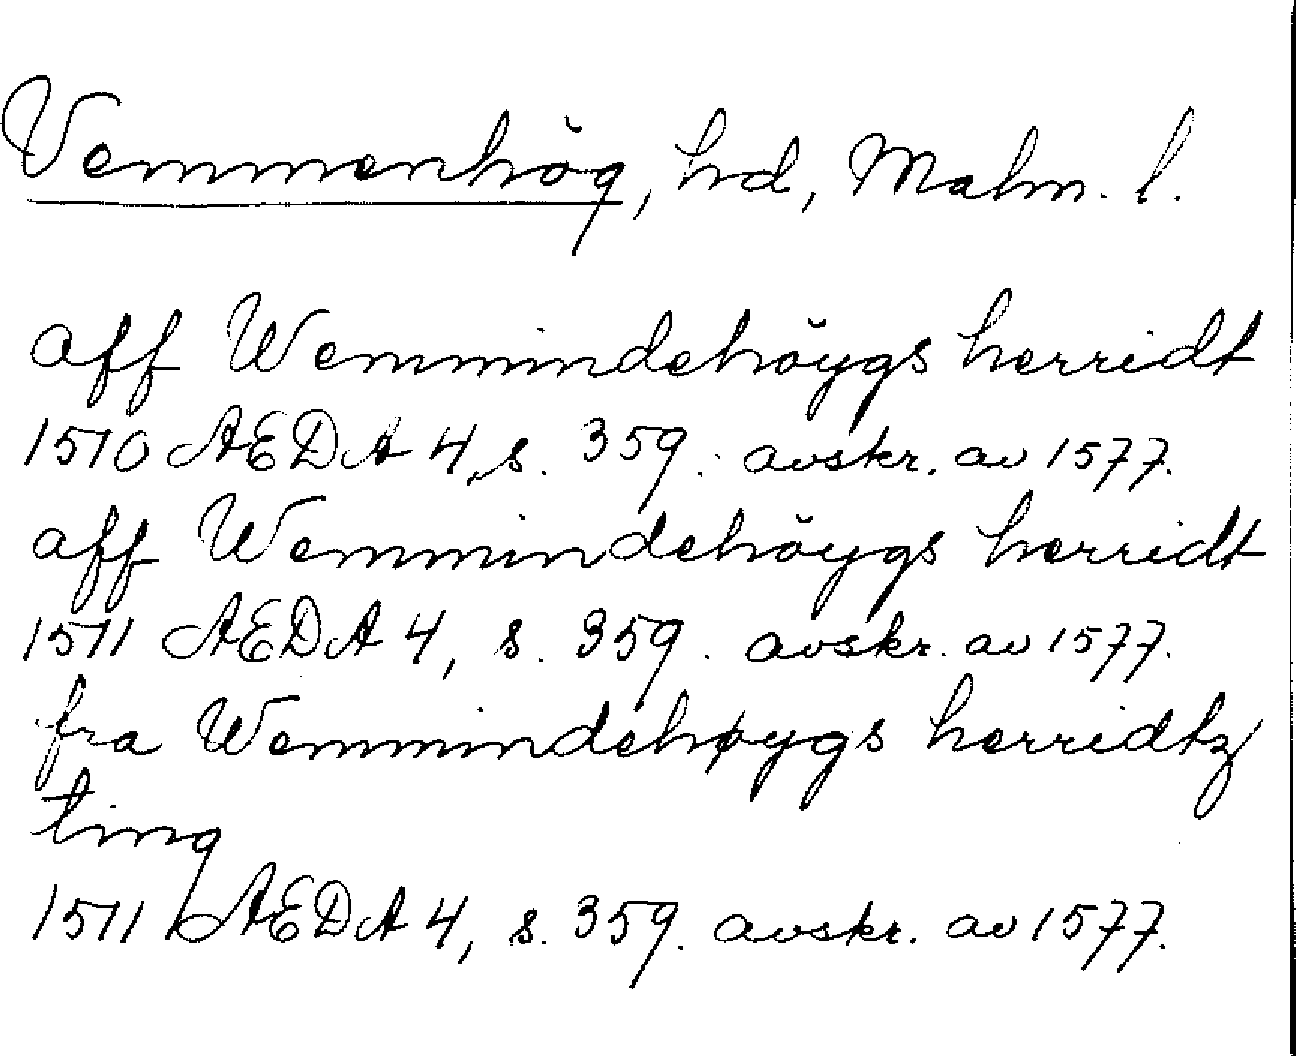 Vemmenhög, hd, Malm. l.
aff Wemmindehöygs herridt
1510 AEDA 4, s. 359. avskr. av 1577.
aff Wemmindehöygs herridt
1511 AEDA 4, s. 359. avskr. av 1577.
fra Wemmindehøygs herridtz
ting
1511 AEDA 4, s. 359. avskr. av 1577.